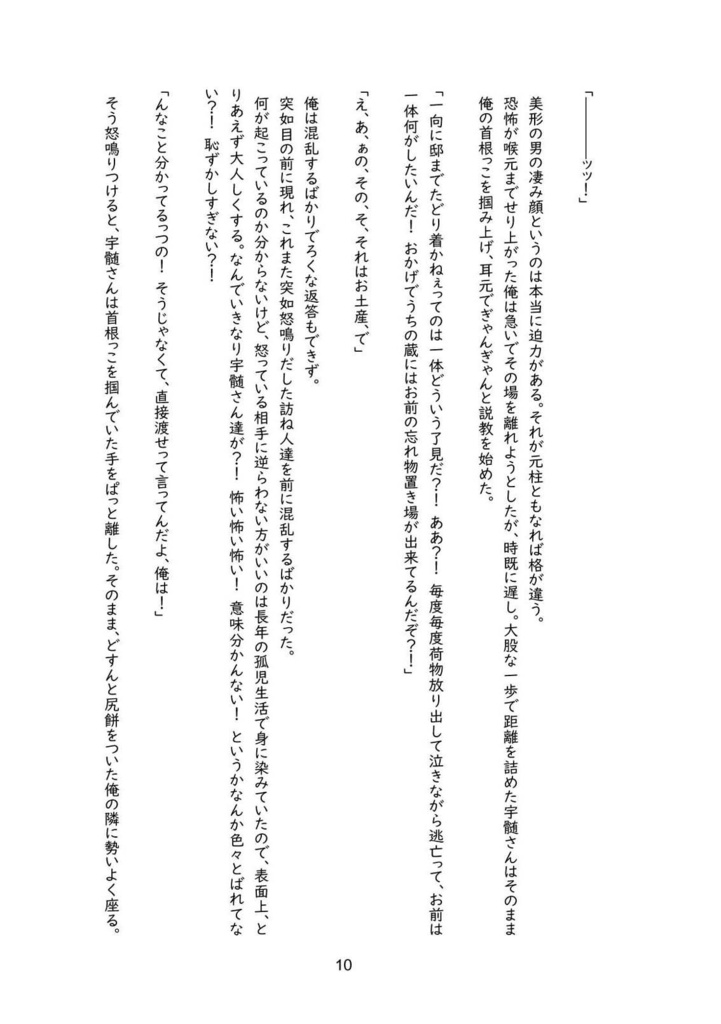 「―――ッッ！」
美形の男の凄み顔というのは本当に迫力がある。それが元柱ともなれば格が違う。
恐怖が喉元までせり上がった俺は急いでその場を離れようとしたが、時既に遅し。大股な一歩で距離を詰めた宇髄さんはそのまま
俺の首根っこを掴み上げ、耳元でぎゃんぎゃんと説教を始めた。
「一向に邸までたどり着かねぇってのは一体どういう了見だ？！　ああ？！　毎度毎度荷物放り出して泣きながら逃亡って、お前は
一体何がしたいんだ！　おかげでうちの蔵にはお前の忘れ物置き場が出来てるんだぞ？！」
「え、あ、ぁの、その、そ、それはお土産、で」
俺は混乱するばかりでろくな返答もできず。
突如目の前に現れ、これまた突如怒鳴りだした訪ね人達を前に混乱するばかりだった。
何が起こっているのか分からないけど、怒っている相手に逆らわない方がいいのは長年の孤児生活で身に染みていたので、表面上、と
りあえず大人しくする。なんでいきなり宇髄さん達が？！　怖い怖い怖い！　意味分かんない！　というかなんか色々とばれてな
い？！　恥ずかしすぎない？！
「んなこと分かってるっつの！　そうじゃなくて、直接渡せって言ってんだよ、俺は！」
そう怒鳴りつけると、宇髄さんは首根っこを掴んでいた手をぱっと離した。そのまま、どすんと尻餅をついた俺の隣に勢いよく座る。
10